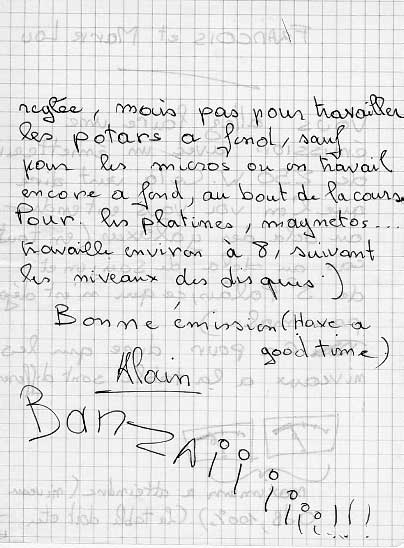 reglée, mais pas pour travailler
les potars a fond, sauf
pour les micros ou on travail
encore a fond, au bout de la course
Pour les platines, magnetos...
travaille environ à 8, suivant
les niveaux des disques.)
Bonne émission (Have a
good time)
Alain
Banzaiiiiiiii!!!